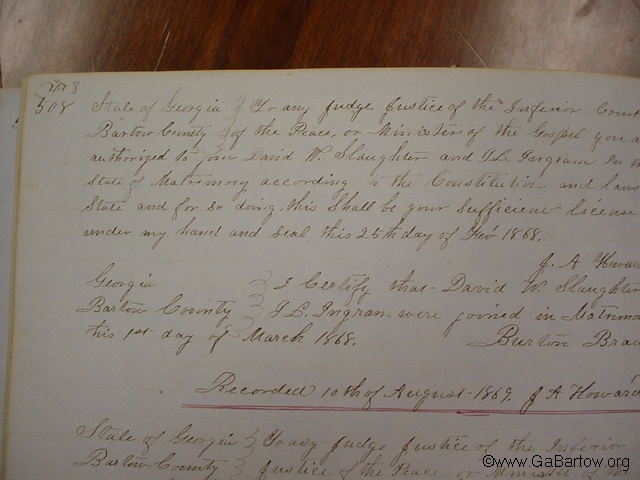 508
State of Georgia } To any Judge, Justice of the Inferior Court
Bartow County } of the Peace, or Minister of the Gospel you a
authorized to join David W. Slaughter and J.L. Ingram In
State of Matrimony according to the Constitution and laws
State and for so doing this Shall be your Sufficient license
under my hand and seal this 25th day of Feb 1868.
J. A Howard
Georgia } I Certify that David W. Slaughter
Bartow County } J.L. Ingram were joined in Matrimo
this 1st day of March 1868.
Burton
Recorded 10th of August 1869. J A Howard
State of Georgia } To any Judge Justice of the Inferior
Bartow County } Justice of the Peace or Minister of the
©www.GaBartow.org